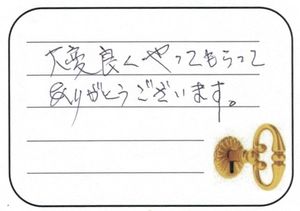 大変良くやってもらって
ありがとうございます。